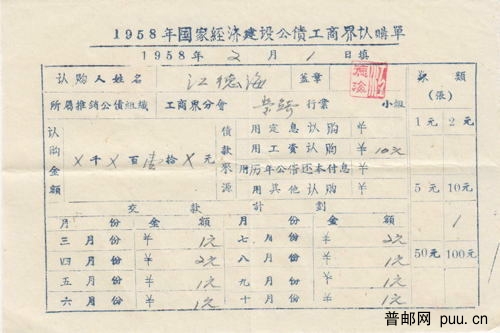 1958年国家經济建设公债工商界认購單
1958年2月1日填
认购人姓名 江德海 蓋章 票額(張)
所屬推销公债組織 工商界分會 行業 小組 1元 2元
认购金額 X千X百壹拾X元
债款來源
用定息认购 ¥
用工资认购 ¥ 10元
用历年公债还本付息 ¥
用其他认购 ¥
5元 10元
1
交款計劃
月份 金額 月份 金額
三月份 ¥ 1元 七月份 ¥ 2元
50元 100元
四月份 ¥ 2元 八月份 ¥ 1元
五月份 ¥ 1元 九月份 ¥ 1元
六月份 ¥ 1元 十月份 ¥ 1元
普邮网 puu.cn